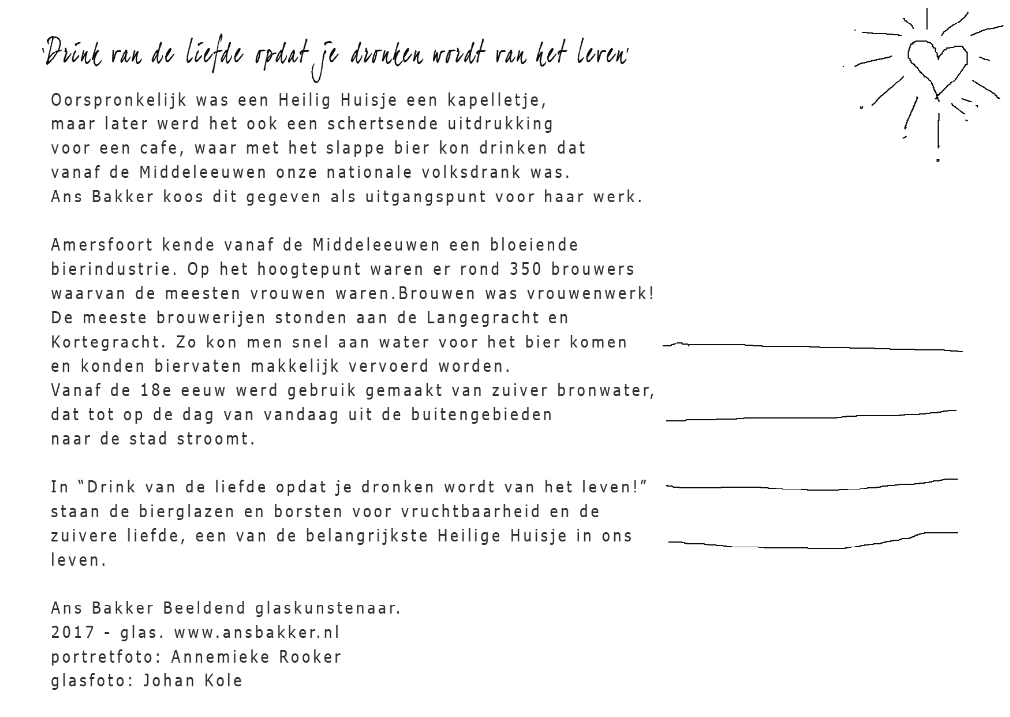 'Drink van de liefde opdat je dronken wordt van het leven'
Oorspronkelijk was een Heilig Huisje een kapelletje,
maar later werd het ook een schertsende uitdrukking
voor een cafe, waar met het slappe bier kon drinken dat
vanaf de Middeleeuwen onze nationale volksdrank was.
Ans Bakker koos dit gegeven als uitgangspunt voor haar werk.
Amersfoort kende vanaf de Middeleeuwen een bloeiende
bierindustrie. Op het hoogtepunt waren er rond 350 brouwers
waarvan de meesten vrouwen waren.Brouwen was vrouwenwerk!
De meeste brouwerijen stonden aan de Langegracht en
Kortegracht. Zo kon men snel aan water voor het bier komen
en konden biervaten makkelijk vervoerd worden.
Vanaf de 18e eeuw werd gebruik gemaakt van zuiver bronwater,
dat tot op de dag van vandaag uit de buitengebieden
naar de stad stroomt.
In “Drink van de liefde opdat je dronken wordt van het leven!”
staan de bierglazen en borsten voor vruchtbaarheid en de
zuivere liefde, een van de belangrijkste Heilige Huisje in ons
leven.
Ans Bakker Beeldend glaskunstenaar.
2017 - glas. www.ansbakker.nl
portretfoto: Annemieke Rooker
glasfoto: Johan Kole